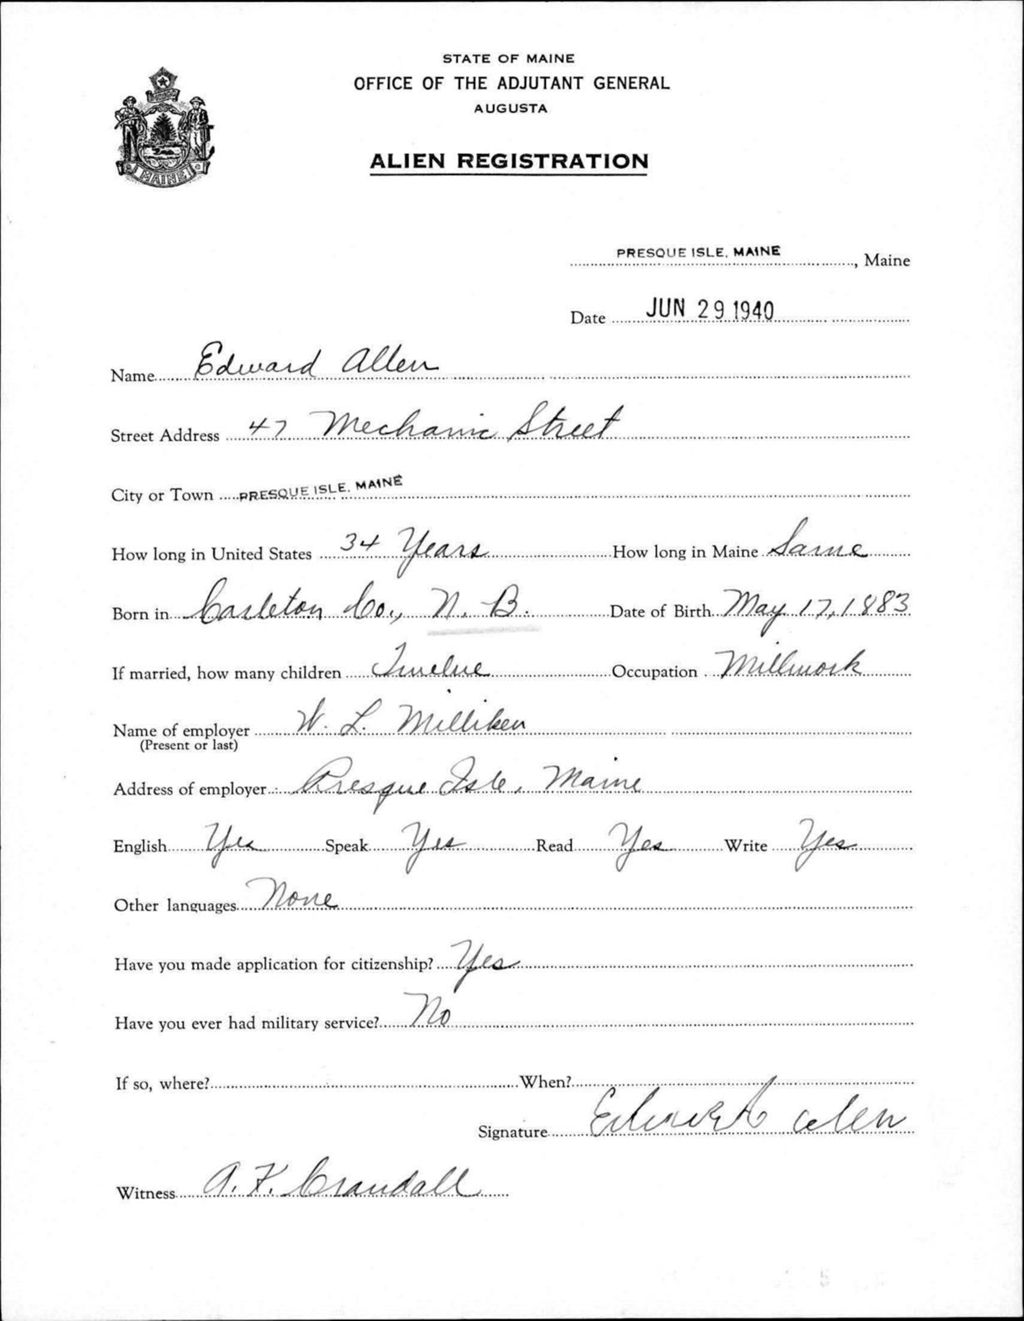 STATE OF MAINE
OFFICE OF THE ADJUTANT GENERAL
AUGUSTA
ALIEN REGISTRATION
MAINE
PRESQUE ISLE, MAINE, Maine
Date JUN 29 1940
Name Edward Allen
Street Address 47 Mechanic Street
City or Town PRESQUE ISLE, MAINE
How long in United States 34 Years How long in Maine Same
Born in Carleton Co., N. B. Date of Birth May 17, 1883
If married, how many children Twelve Occupation Millwork
Name of employer W. L. Milliken
(Present or last)
Address of employer Presque Isle, Maine
English Yes Speak Yes Read Yes Write Yes
Other languages None
Have you made application for citizenship? Yes
Have you ever had military service? No
If so, where? When?
Signature Edward Allen
Witness A. F. Crandall